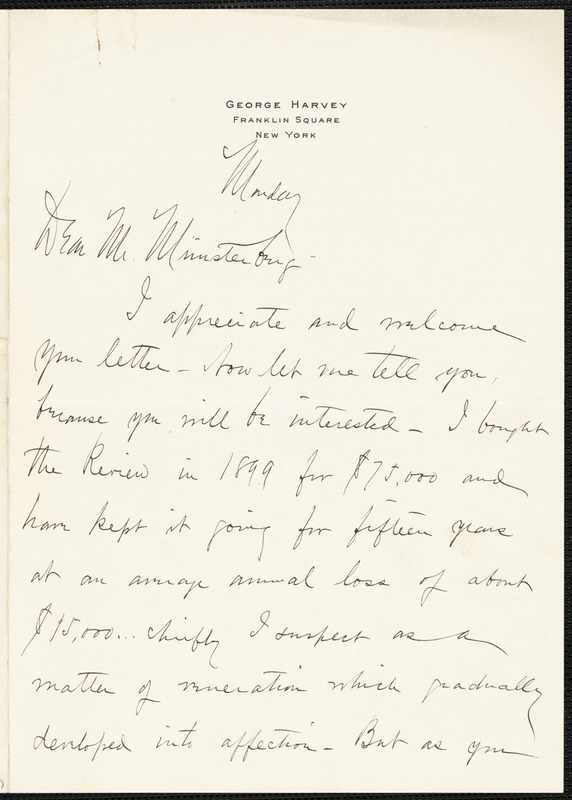 GEORGE HARVEY
FRANKLIN SQUARE
NEW YORK
Monday
Dear Mr. Münsterberg -
I appreciate and welcome
your letter - Now let me tell you,
because you will be interested - I bought
the Review in 1899 for $75,000 and
have kept it going for fifteen years
at an average annual loss of about
$15,000... chiefly I suspect as a
matter of veneration which gradually
developed into affection - But as you